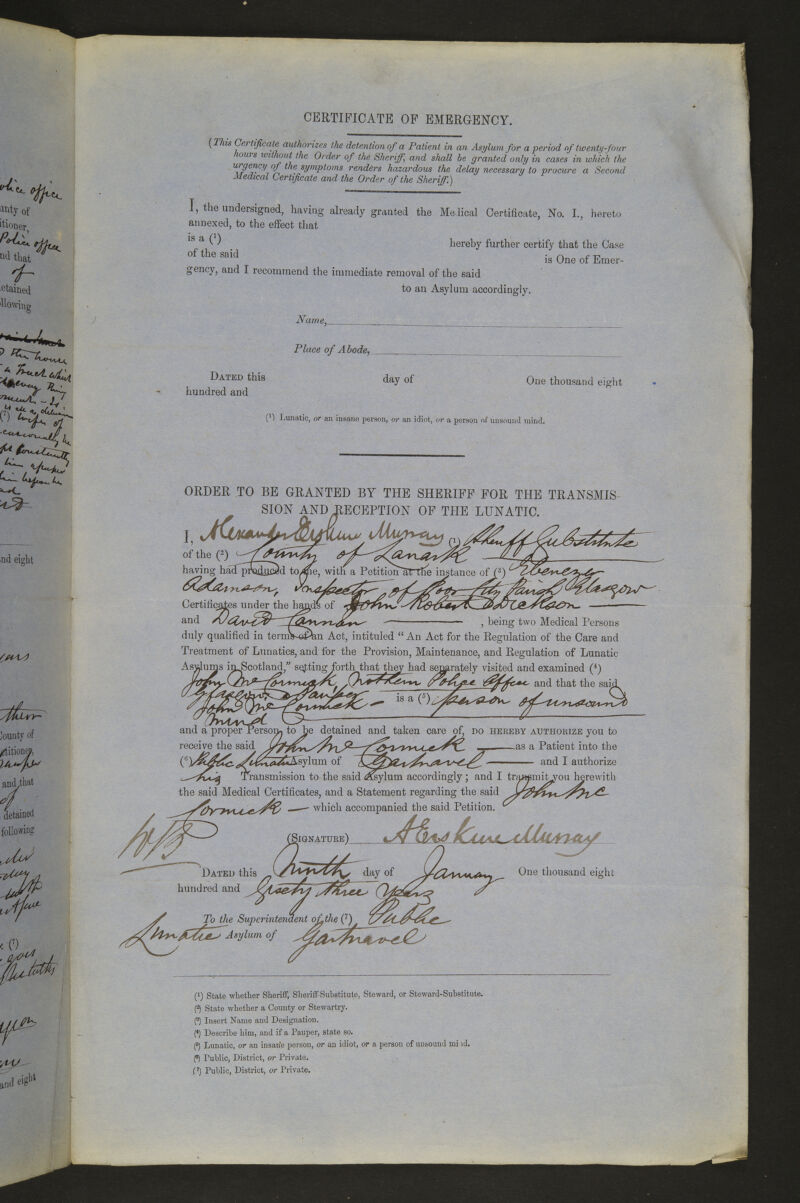 CERTIFICATE OF EMERGENCY.
(This Certificate authorizes the detention of a Patient in an Asylum for a period of twenty-four
hours without the Order of the Sheriff, and shall be granted only in cases in which the
urgency of the symptoms renders hazardous the delay necessary to procure a Second
Medical Certificate and the Order of the Sheriff.)
I, the undersigned, having already granted the Medical Certificate, No. I., hereto
annexed, to the effect that
is a (1) hereby further certify that the Case
of the said is One of Emer-
gency, and I recommend the immediate removal of the said
to an Asylum accordingly.
Name,
Place of Abode,
DATED this day of One thousand eight
hundred and
(1) Lunatic, or an insane person, or an idiot, or a person of unsound mind.
ORDER TO BE GRANTED BY THE SHERIFF FOR THE TRANSMIS-
SION AND RECEPTION OF THE LUNATIC.
I, Alexander Erskine Murray (1) Sheriff Substitute
of the (2) County of Lanark
having had produced to me, with a Petition at the instance of (3) Ebenezer
Adamson, Inspector of Poor City Parish Glasgow
Certificates under the hands of John Robert Dickson
and David Cannan , being two Medical Persons
duly qualified in terms of an Act, intituled "An Act for the Regulation of the Care and
Treatment of Lunatics, and for the Provision, Maintenance, and Regulation of Lunatic
Asylums in Scotland," setting forth that they had separately visited and examined (4)
John McCormick, Northern Police Office and that the said
Glasgow, a Pauper
John McCormick - is a (5) person of unsound
mind
and a proper Person to be detained and taken care of, DO HEREBY AUTHORIZE you to
receive the said John McCormick as a Patient into the
(6) Public Lunatic Asylum of Gartnavel and I authorize
his Transmission to the said Asylum accordingly; and I transmit you herewith
the said Medical Certificates, and a Statement regarding the said John Mc
Cormick — which accompanied the said Petition.
(SIGNATURE) A Erskine Murray
DATED this Ninth day of January One thousand eight
hundred and Sixty three years
To the Superintendent of the (7) Public
Lunatic Asylum of Gartnavel
(1) State whether Sheriff, Sheriff-Substitute, Steward, or Steward-Substitute.
(2) State whether a County or Stewartry.
(3) Insert Name and Designation.
(4) Describe him, and if a Pauper, state so.
(5) Lunatic, or an insane person, or an idiot, or a person of unsound mind.
(6) Public, District, or Private.
(7) Public, District, or Private.